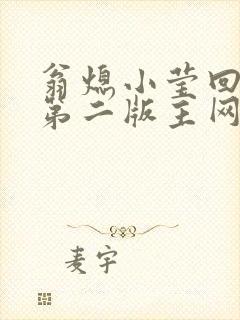 翁熄小莹回
第二版主网
麦宇